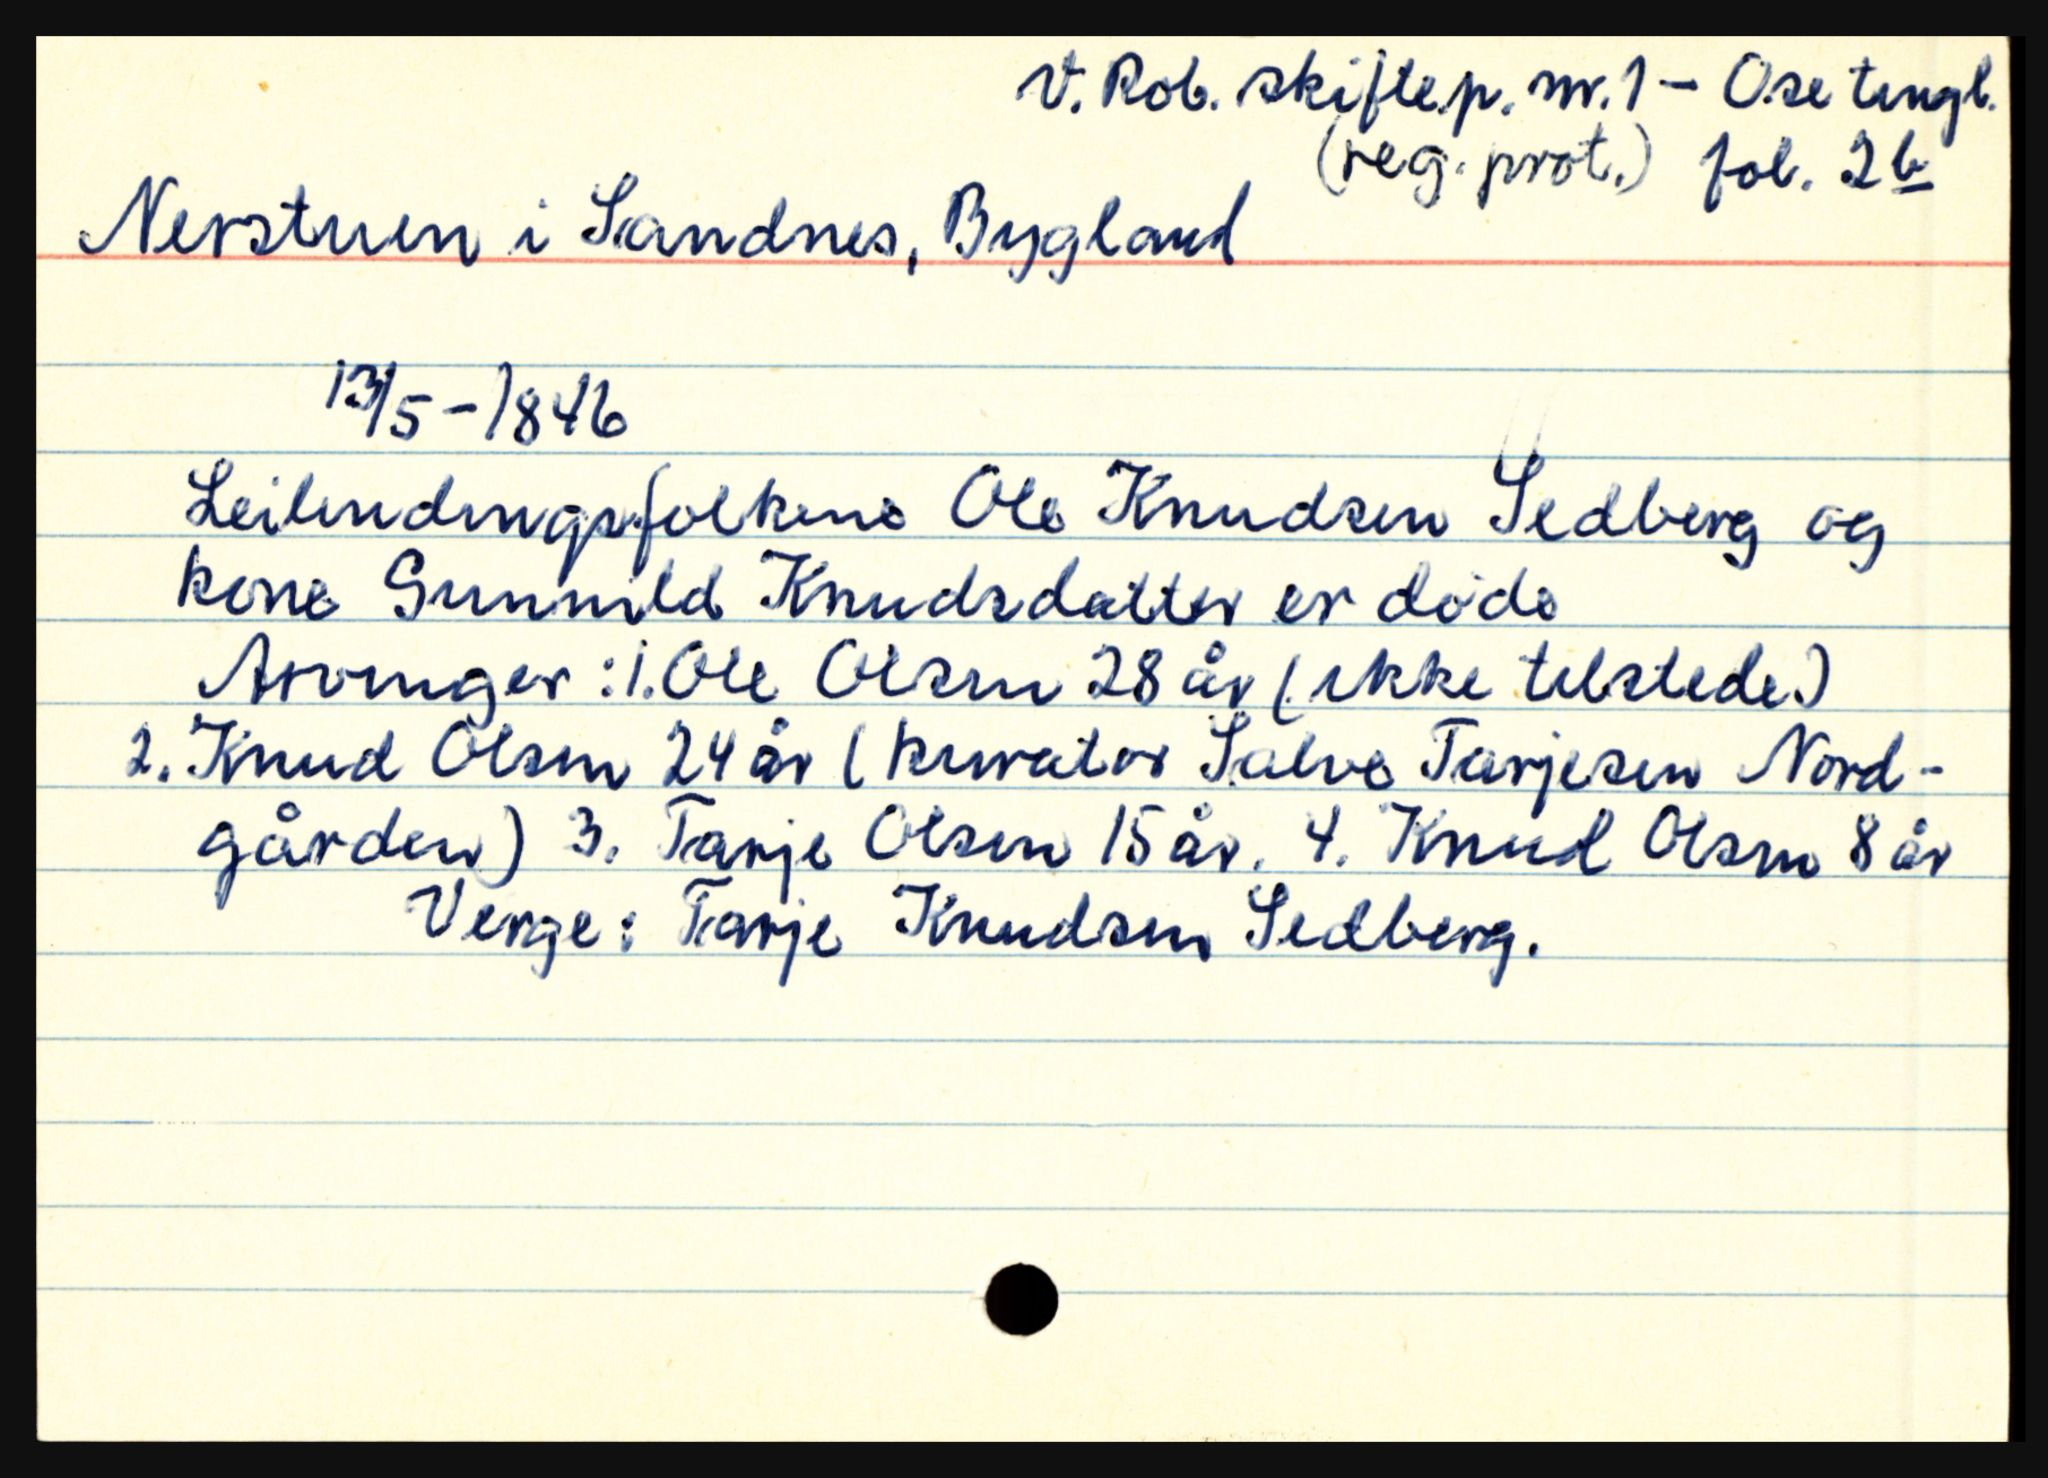 V. Rob. skiftep. nr. 1 – Ose tingl.
(reg. prot.) fol. 2b
Nerstuen i Sandnes, Bygland
13/5 – 1846
Leilendingsfolkene Ole Knudsen Sedberg og
kone Gunnild Knudsdatter er døde
Arvinger: 1. Ole Olsen 28 år (ikke tilstede)
2. Knud Olsen 24 år (kurator Salve Tarjesen Nord-
gården) 3. Tarje Olsen 15 år. 4. Knud Olsen 8 år
Verge: Tarje Knudsen Sedberg.